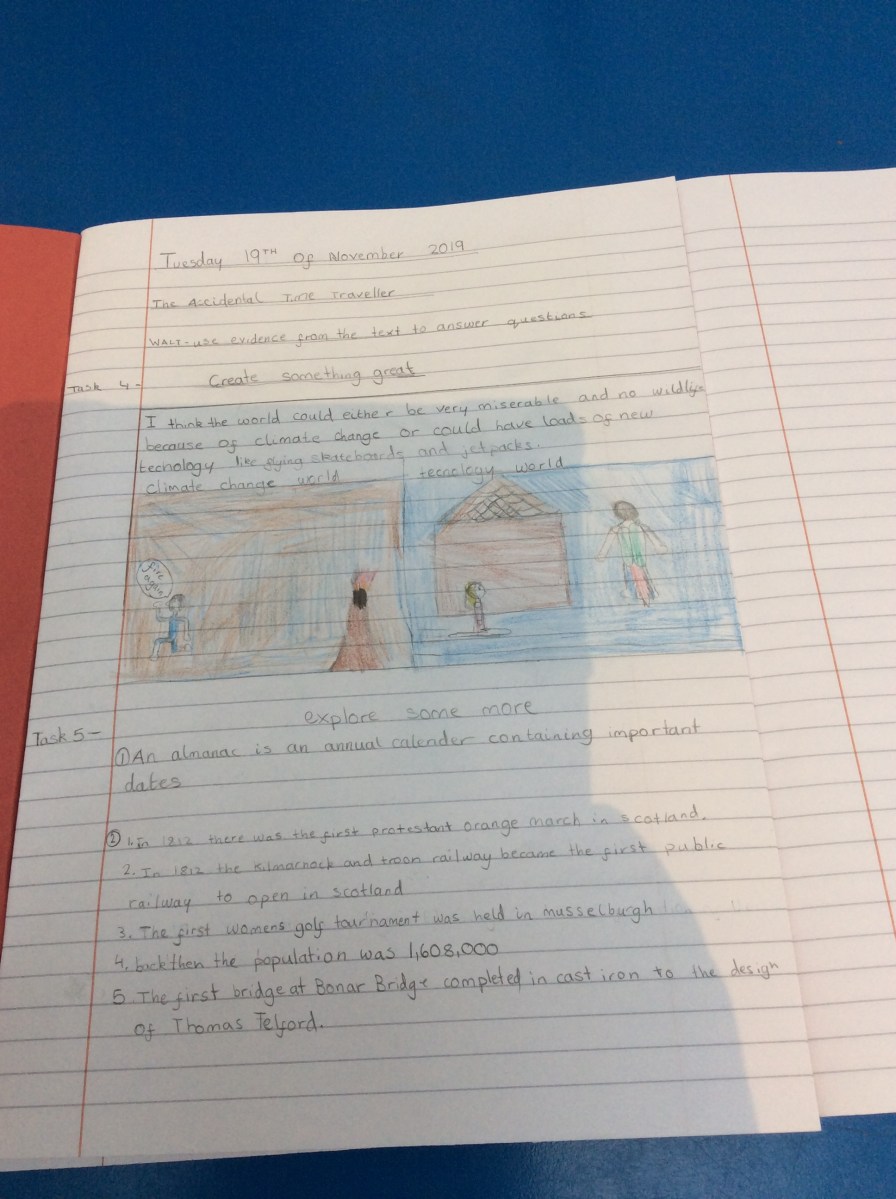 Tuesday 19TH Of November 2019
The Accidental Time Traveller
WALT-use evidence from the text to answer questions
Task 4- Create something great
I think the world could either be very miserable and no wildlife
because of climate change or could have loads of new
tecnology like flying skateboards and jetpacks.
climate change world tecnology world
fire
again
Task 5- explore some more
① An almanac is an annual calender containing important
dates
② 1. In 1812 there was the first protestant orange march in scotland.
2. In 1812 the kilmarnock and troon railway became the first public
railway to open in scotland
3. The first womens golf tournament was held in musselburgh
4. back then the population was 1,608,000
5. The first bridge at Bonar Bridge completed in cast iron to the design
of Thomas Telford.